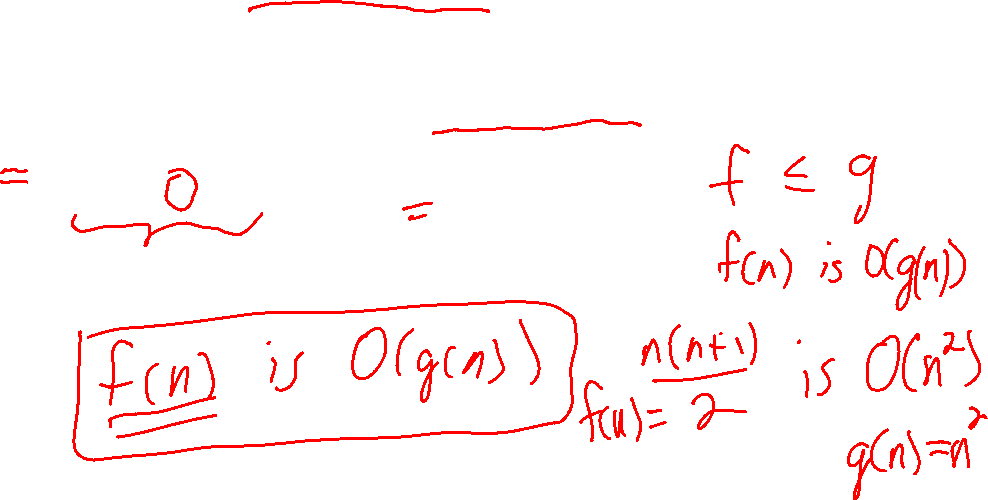 f ≤ g
= O =
f(n) is O(g(n))
f(n) is O(g(n))
f(n) = n(n+1)/2 is O(n²)
g(n)=n²